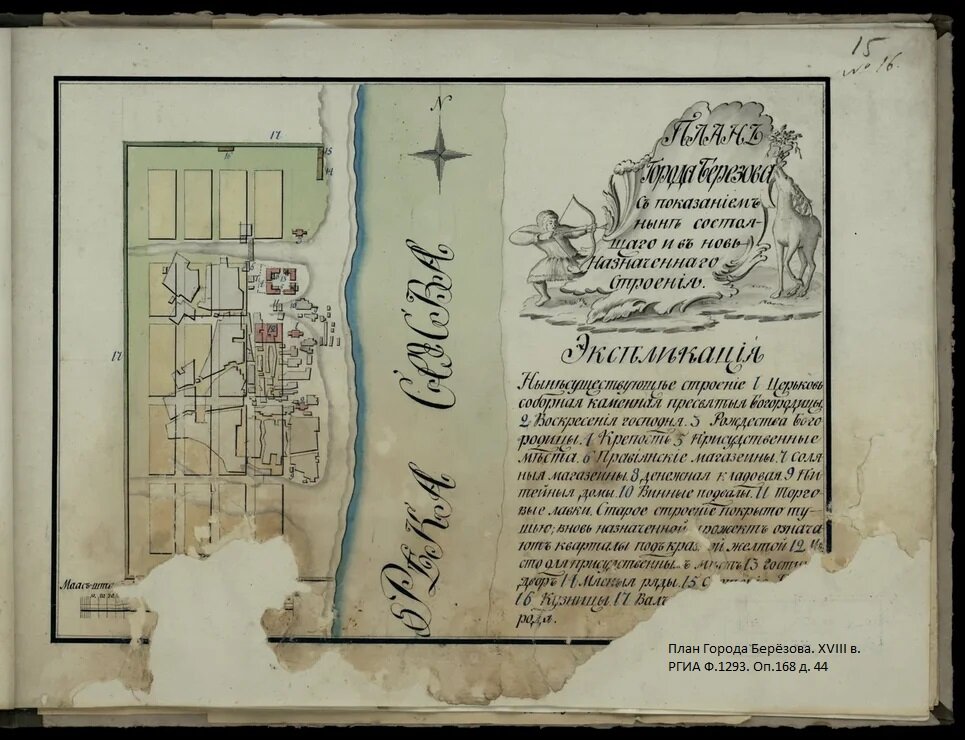 15
№ 16.
ПЛАНЪ
Города Березова
Съ показанiемъ
нынѣ состоя-
щаго и въ новь
Назначеннаго
Строенiя.
N
17
17
15
14
16
РѢКА СОСВА
Экспликацiя
Нынѣсуществующѣе строенiе 1 Церьковь
соборная каменная пресвятыя Богородицы
2. Воскресенiя господня. 3 Рождества Бого-
родицы. 4 Крепость 5 Присудственные
мѣста. 6 Правiянскiе магазеины. 7 соля-
ныя магазеины. 8 денежная кладовая. 9 Пи-
тейныя домы. 10 Винные подвалы. 11 Торго-
вые лавки. Старое строенiе покрыто ту-
шью; вновь назначенной прожектъ означа-
ютъ кварталы подъ краз. й желтой 12 Мѣ-
сто для присудственны ъ мѣстъ 13 гости
дворъ 14 Мясныя ряды. 15
16 Кузницы. 17 Валъ
рода.
Маасъшта
План Города Берёзова. XVIII в.
РГИА Ф.1293. Оп.168 д. 44